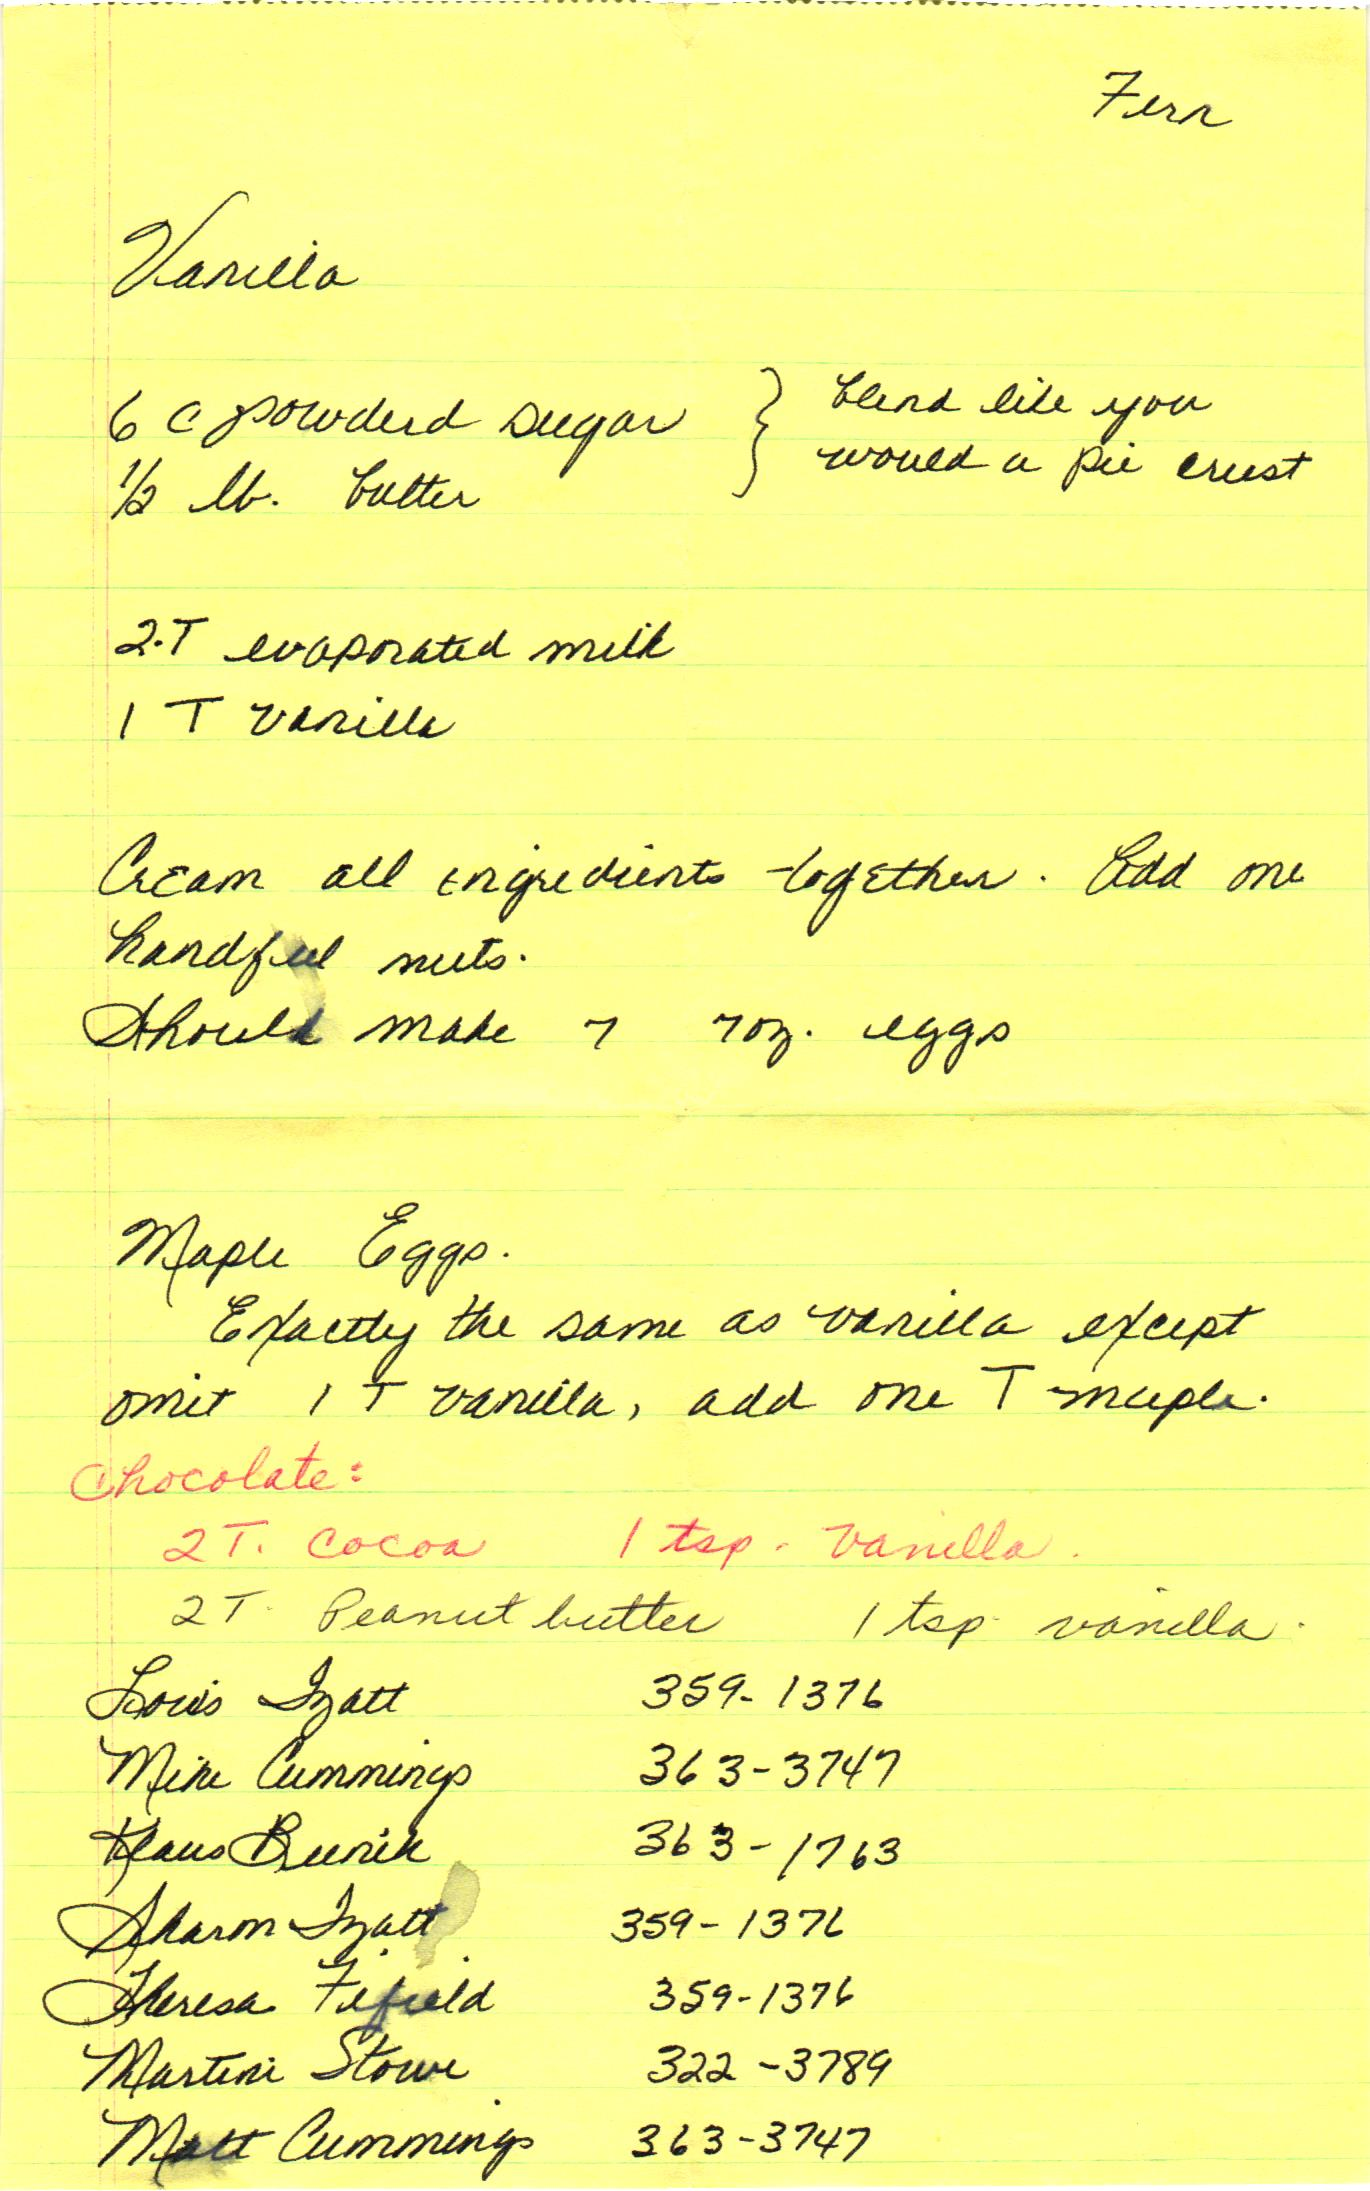 Fern
Vanilla
6 c powderd sugar } blend like you
1/2 lb. butter } would a pie crust
2.T evaporated milk
1 T vanilla
Cream all ingredients together. Add one
handful nuts.
Should make 7 7oz. eggs
Maple Eggs.
Exactly the same as vanilla except
omit 1 T vanilla, add one T maple.
Chocolate:
2 T. cocoa 1 tsp. vanilla.
2 T. Peanut butter 1 tsp. vanilla.
Izatt 359-1376
Mike Cummings 363-3747
Klaus 363-1763
Sharon Izatt 359-1376
Theresa Fifield 359-1376
Stowe 322-3789
Matt Cummings 363-3747